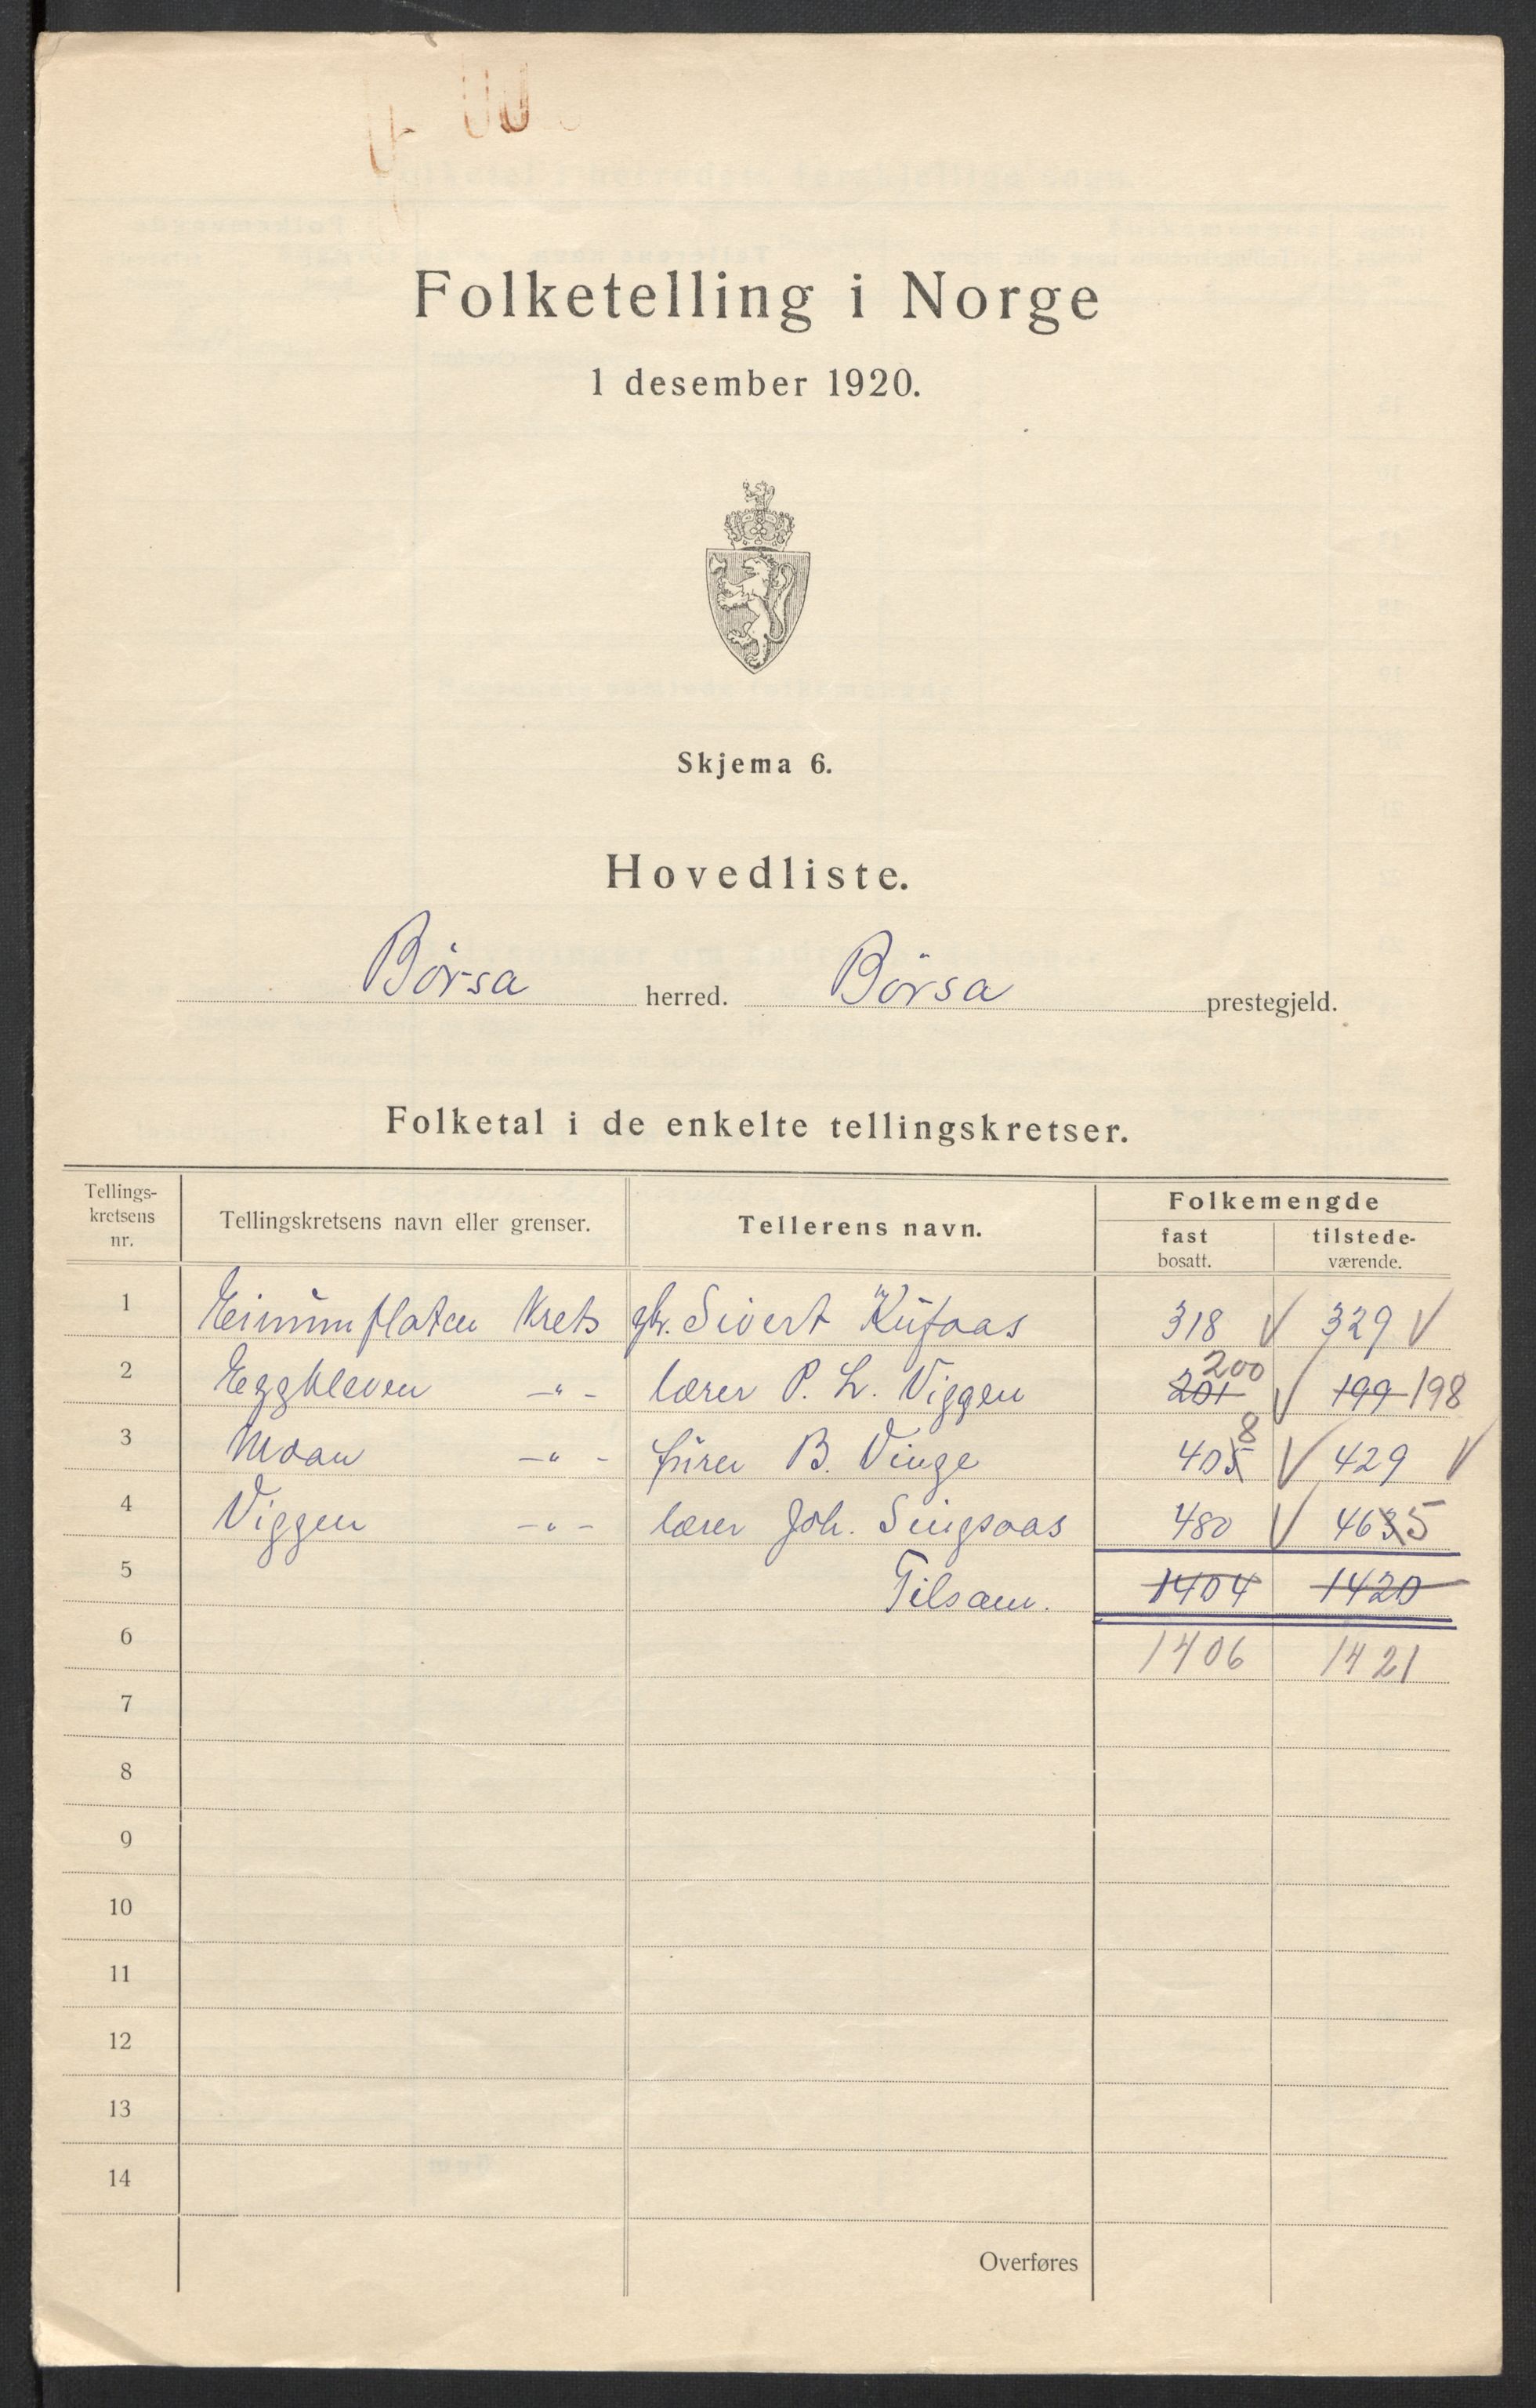 Folketelling i Norge
1 desember 1920.
Skjema 6.
Hovedliste.
Börsa herred. Börsa prestegjeld.
Folketal i de enkelte tellingskretser.
Tellings-kretsens nr. Tellingskretsens navn eller grenser. Tellerens navn. Folkemengde
fast bosatt. tilstede-værende.
1 Krets Sivert 318 V 329 V
2 Eggkleven -"- lærer P. L. Viggen 201 200 V 199 198
3 Moan -"- B. Vinge 405 8 V 429 V
4 Viggen -"- lærer Joh. Singsaas 480 V 463 5
5 Tilsam. 1404 1420
6 1406 1421
7
8
9
10
11
12
13
14
Overføres